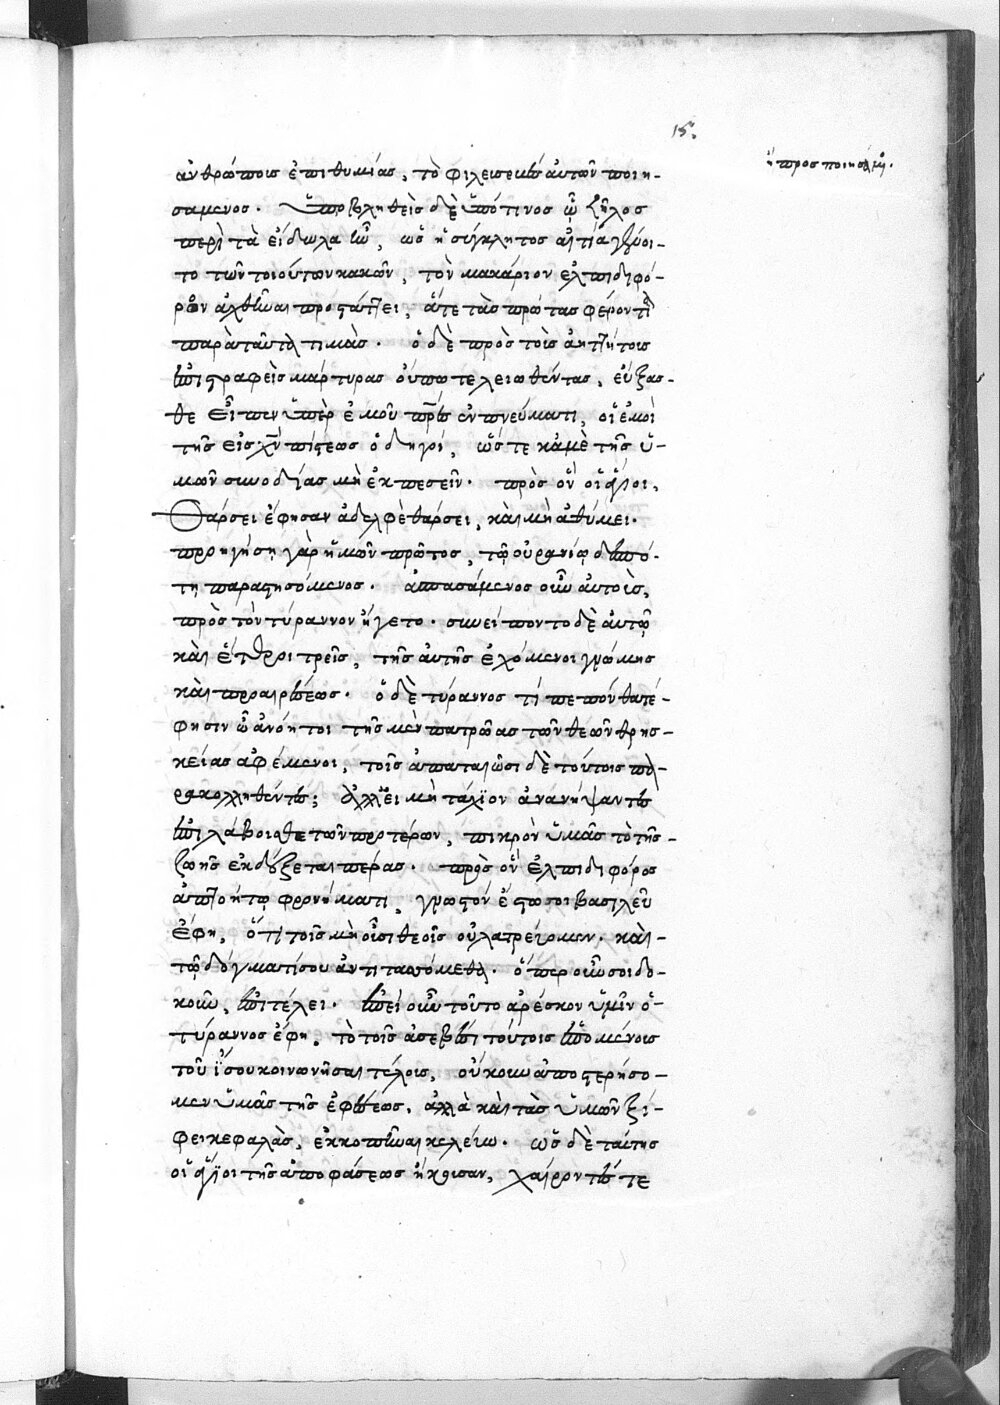 15.
ἢ προσποιησαμένη.
ἀνθρώποις ἐπιθυμίας, τὸ φιλεῖσθαι παρ' αὐτῶν ποιη-
σάμενος. Ὑποβληθεὶς δὲ ὑπό τινος ᾧ ζῆλος
περὶ τὰ εἴδωλα ἦν, ὡς ἡ σύγκλητος αἰτία γένοι-
το τῶν τοιούτων κακῶν, τὸν μακάριον ἐλπιδιφό-
ρον ἀχθῆναι προστάττει, ἅτε τὰς πρώτας φέροντα
παρὰ ταύτῃ τιμάς. ὁ δὲ πρὸς τοὺς ἀηττήτους
ἐπιστραφεὶς μάρτυρας οὔπω τελειωθέντας, εὔξασ-
θε εἶπεν ὑπὲρ ἐμοῦ πατέρες ἐν πνεύματι, οἱ ἐμοὶ
τῆς εἰς χριστὸν πίστεως ὁδηγοί, ὥστε κἀμὲ τῆς ὑ-
μῶν συνοδίας μὴ ἐκπεσεῖν. πρὸς ὃν οἱ ἅγιοι,
Θάρσει ἔφησαν ἀδελφὲ θάρσει, καὶ μὴ ἀθύμει.
προηγήσῃ γὰρ ἡμῶν πρῶτος, τῷ οὐρανίῳ δεσπό-
τῃ παραστησόμενος. ἀσπασάμενος οὖν αὐτούς,
πρὸς τὸν τύραννον ἤγετο. συνείποντο δὲ αὐτῷ
καὶ ἕτεροι τρεῖς, τῆς αὐτῆς ἐχόμενοι γνώμης
καὶ προαιρέσεως. ὁ δὲ τύραννος τί πεπόνθατέ
φησιν ὦ ἀνόητοι τῆς μὲν πατρῴας τῶν θεῶν θρησ-
κείας ἀφέμενοι, τοῖς ἀπαταιῶσι δὲ τούτοις πα-
ρακολληθέντες; ἀλλ' εἰ μὴ τάχιον ἀνανήψαντες
ἐπιλάβοισθε τῶν προτέρων, πικρὸν ὑμᾶς τὸ τῆς
ζωῆς ἐκδέξεται πέρας. πρὸς ὃν ἐλπιδιφόρος
ἀπτοήτῳ φρονήματι, γνωστὸν ἔστω σοι βασιλεῦ
ἔφη, ὅτι τοῖς μὴ οὖσι θεοῖς οὐ λατρεύομεν. καὶ
τῷ δόγματί σου ἀντιτασσόμεθα. ὅπερ οὖν σοι δο-
κοῦν, ἐπιτέλει. ἐπεὶ οὖν τοῦτο ἀρέσκον ὑμῖν ὁ
τύραννος ἔφη, τὸ τοῖς ἀσεβέσι τούτοις ἑπομένοις
τοῦ ἴσου κοινωνῆσαι τέλους, οὔκουν ἀποστερήσο-
μεν ὑμᾶς τῆς ἐφέσεως, ἀλλὰ καὶ τὰς ὑμῶν ξί-
φει κεφαλὰς, ἐκκοπῆναι κελεύω. ὡς δὲ ταύτης
οἱ ἅγιοι τῆς ἀποφάσεως ἤκουσαν, χαίροντές τε